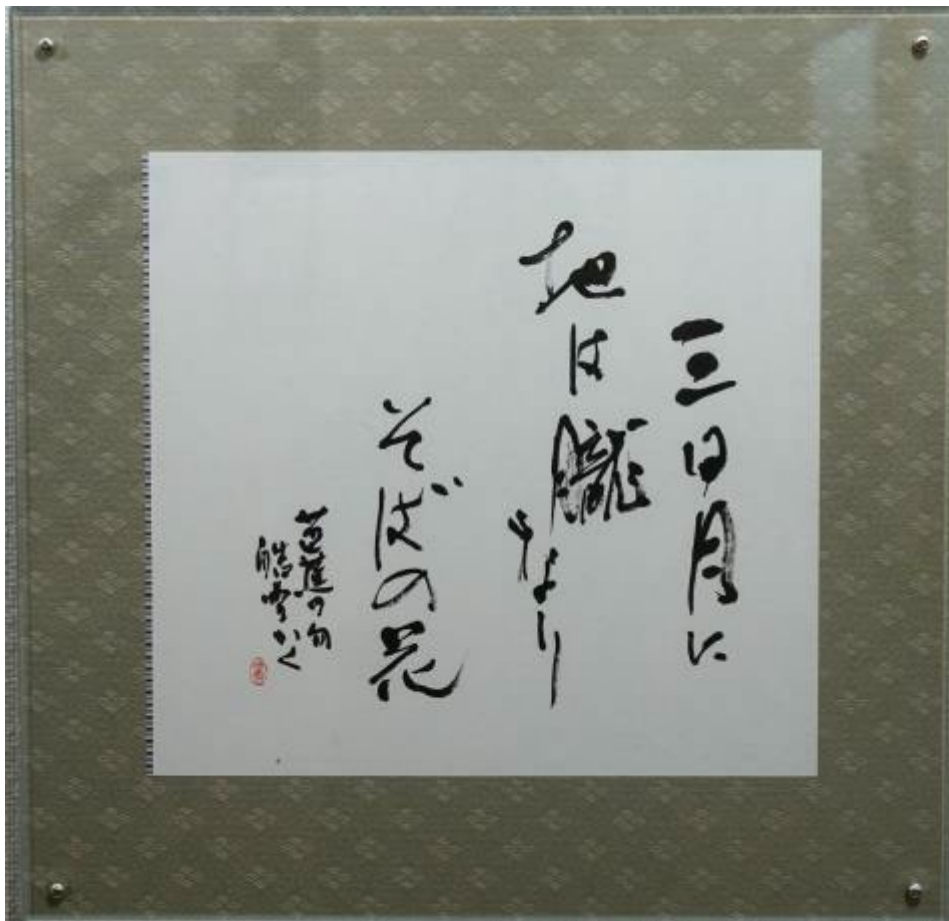 三日月に
地は朧なり
そばの花
芭蕉の句
かく